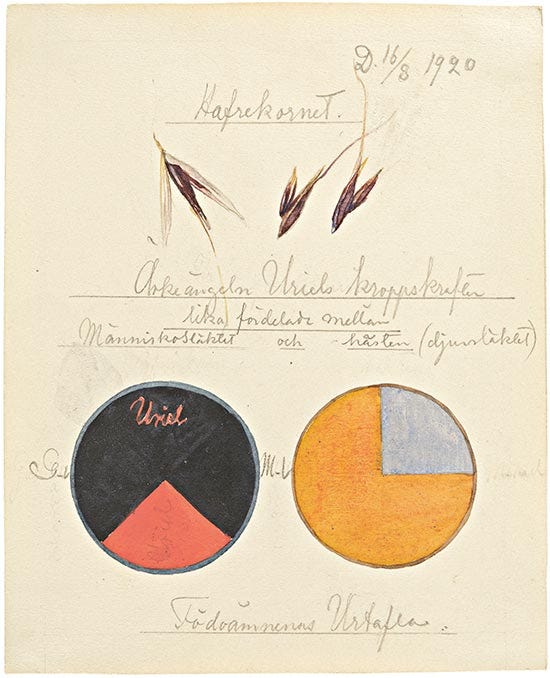 D. 16/8 1920
Hafrekornet.
Ärkeängeln Uriels kroppskrafter
lika fördelade mellan
Människosläktet och hästen (djursläktet)
Uriel
Uriel
Födoämnenas Urtafla.